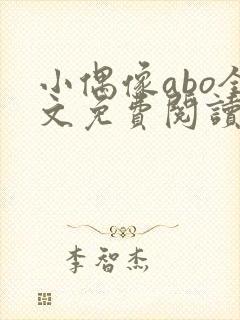 小偶像abo全
文免費閱讀
李智杰